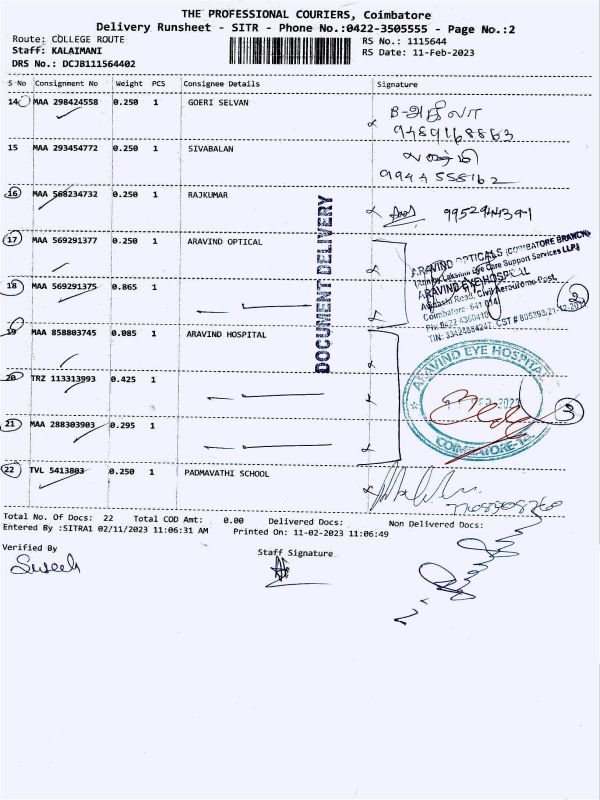 THE PROFESSIONAL COURIERS, Coimbatore
Delivery Runsheet - SITR - Phone No.:0422-3505555 - Page No.:2
Route: COLLEGE ROUTE
RS No.: 1115644
Staff: KALAIMANI
RS Date: 11-Feb-2023
DRS No.: DCJB111564402
S No Consignment No Weight PCS Consignee Details Signature
14 MAA 298424558 0.250 1 GOERI SELVAN
B-அதிலா
9489168863
15 MAA 293454772 0.250 1 SIVABALAN
9944558162
16 MAA 568234732 0.250 1 RAJKUMAR
9952944391
17 MAA 569291377 0.250 1 ARAVIND OPTICAL
18 MAA 569291375 0.865 1
19 MAA 858803745 0.085 1 ARAVIND HOSPITAL
20 TRZ 113313993 0.425 1
21 MAA 288303903 0.295 1
22 TVL 5413803 0.250 1 PADMAVATHI SCHOOL
DOCUMENT DELIVERY
ARAVIND OPTICALS (COIMBATORE BRANCH)
Eye Care Support Services LLP)
ARAVIND EYE HOSPITAL
Avinashi Road, Civil Aerodrome Post,
Coimbatore- 641 014
2
ARAVIND EYE HOSPITAL
COIMBATORE-14
3
Total No. Of Docs: 22 Total COD Amt: 0.00 Delivered Docs: Non Delivered Docs:
Entered By :SITRA1 02/11/2023 11:06:31 AM Printed On: 11-02-2023 11:06:49
Verified By
Staff Signature
Suresh